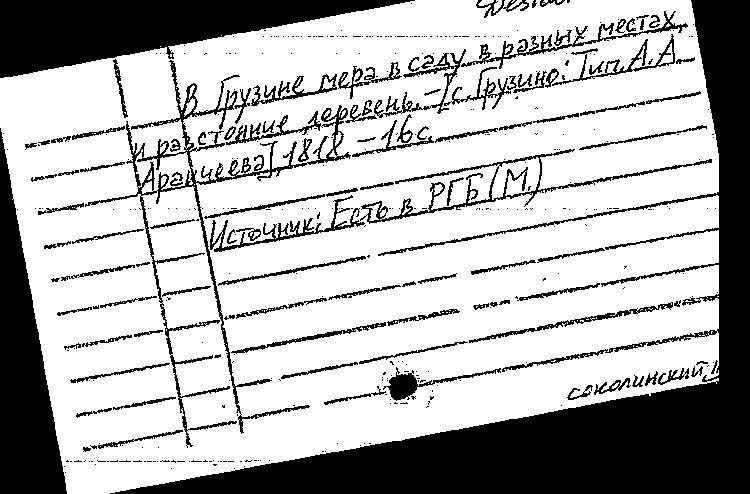 В Грузине мера в саду в разных местах,
и разстояние деревень. – [с. Грузино: Тип. А. А.
Аракчеева], 1818. – 16 с.
Источник: Есть в РГБ (М.)
соколинский, 11